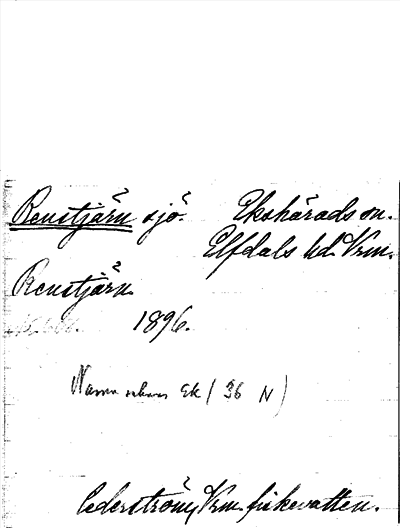 Renstjärn sjö. Ekshärads sn.
Elfdals hd. Vrm.
Renstjärn
1896.
Namn Ek (36 N)
Cederström, Vrm. fiskevatten.